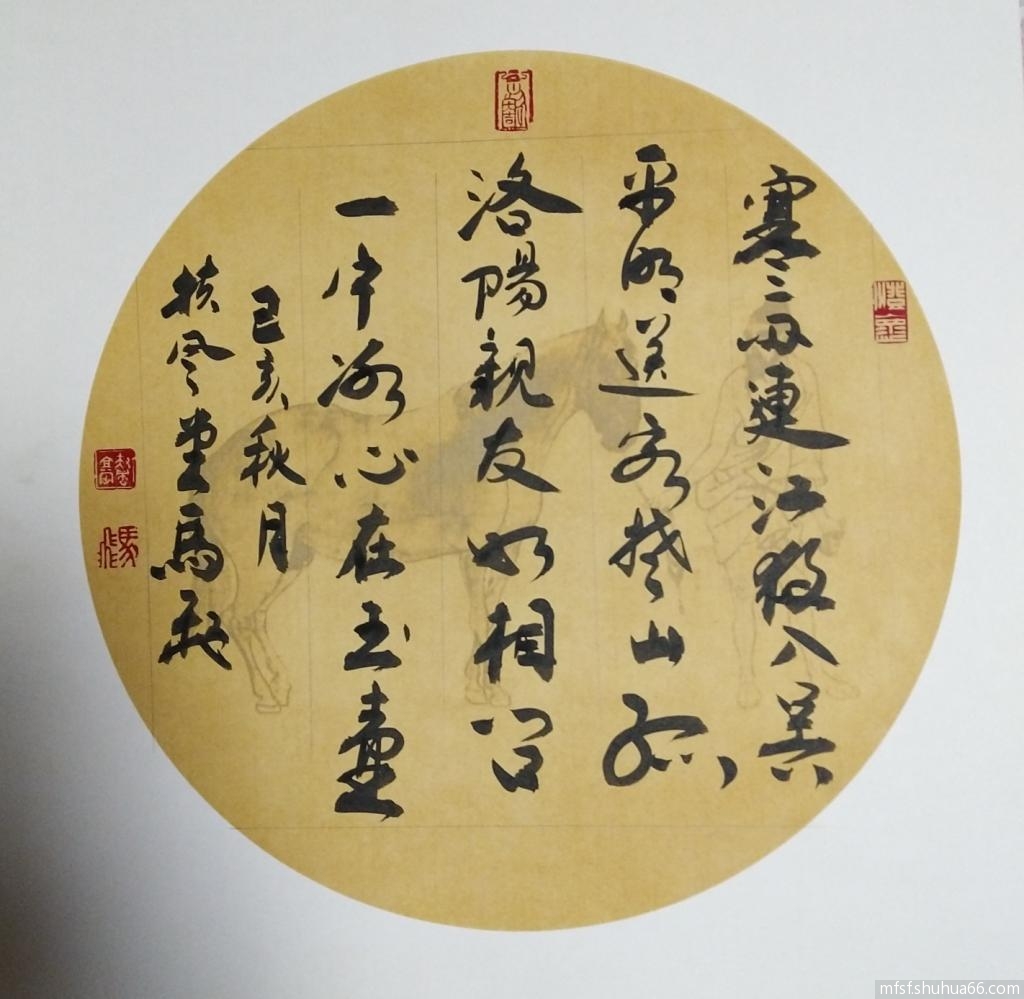 寒雨連江夜入吳
平明送客楚山孤
洛陽親友如相问
一片冰心在玉壺
己亥秋月
扶风堂馬飛
mfsfshuhua66.com